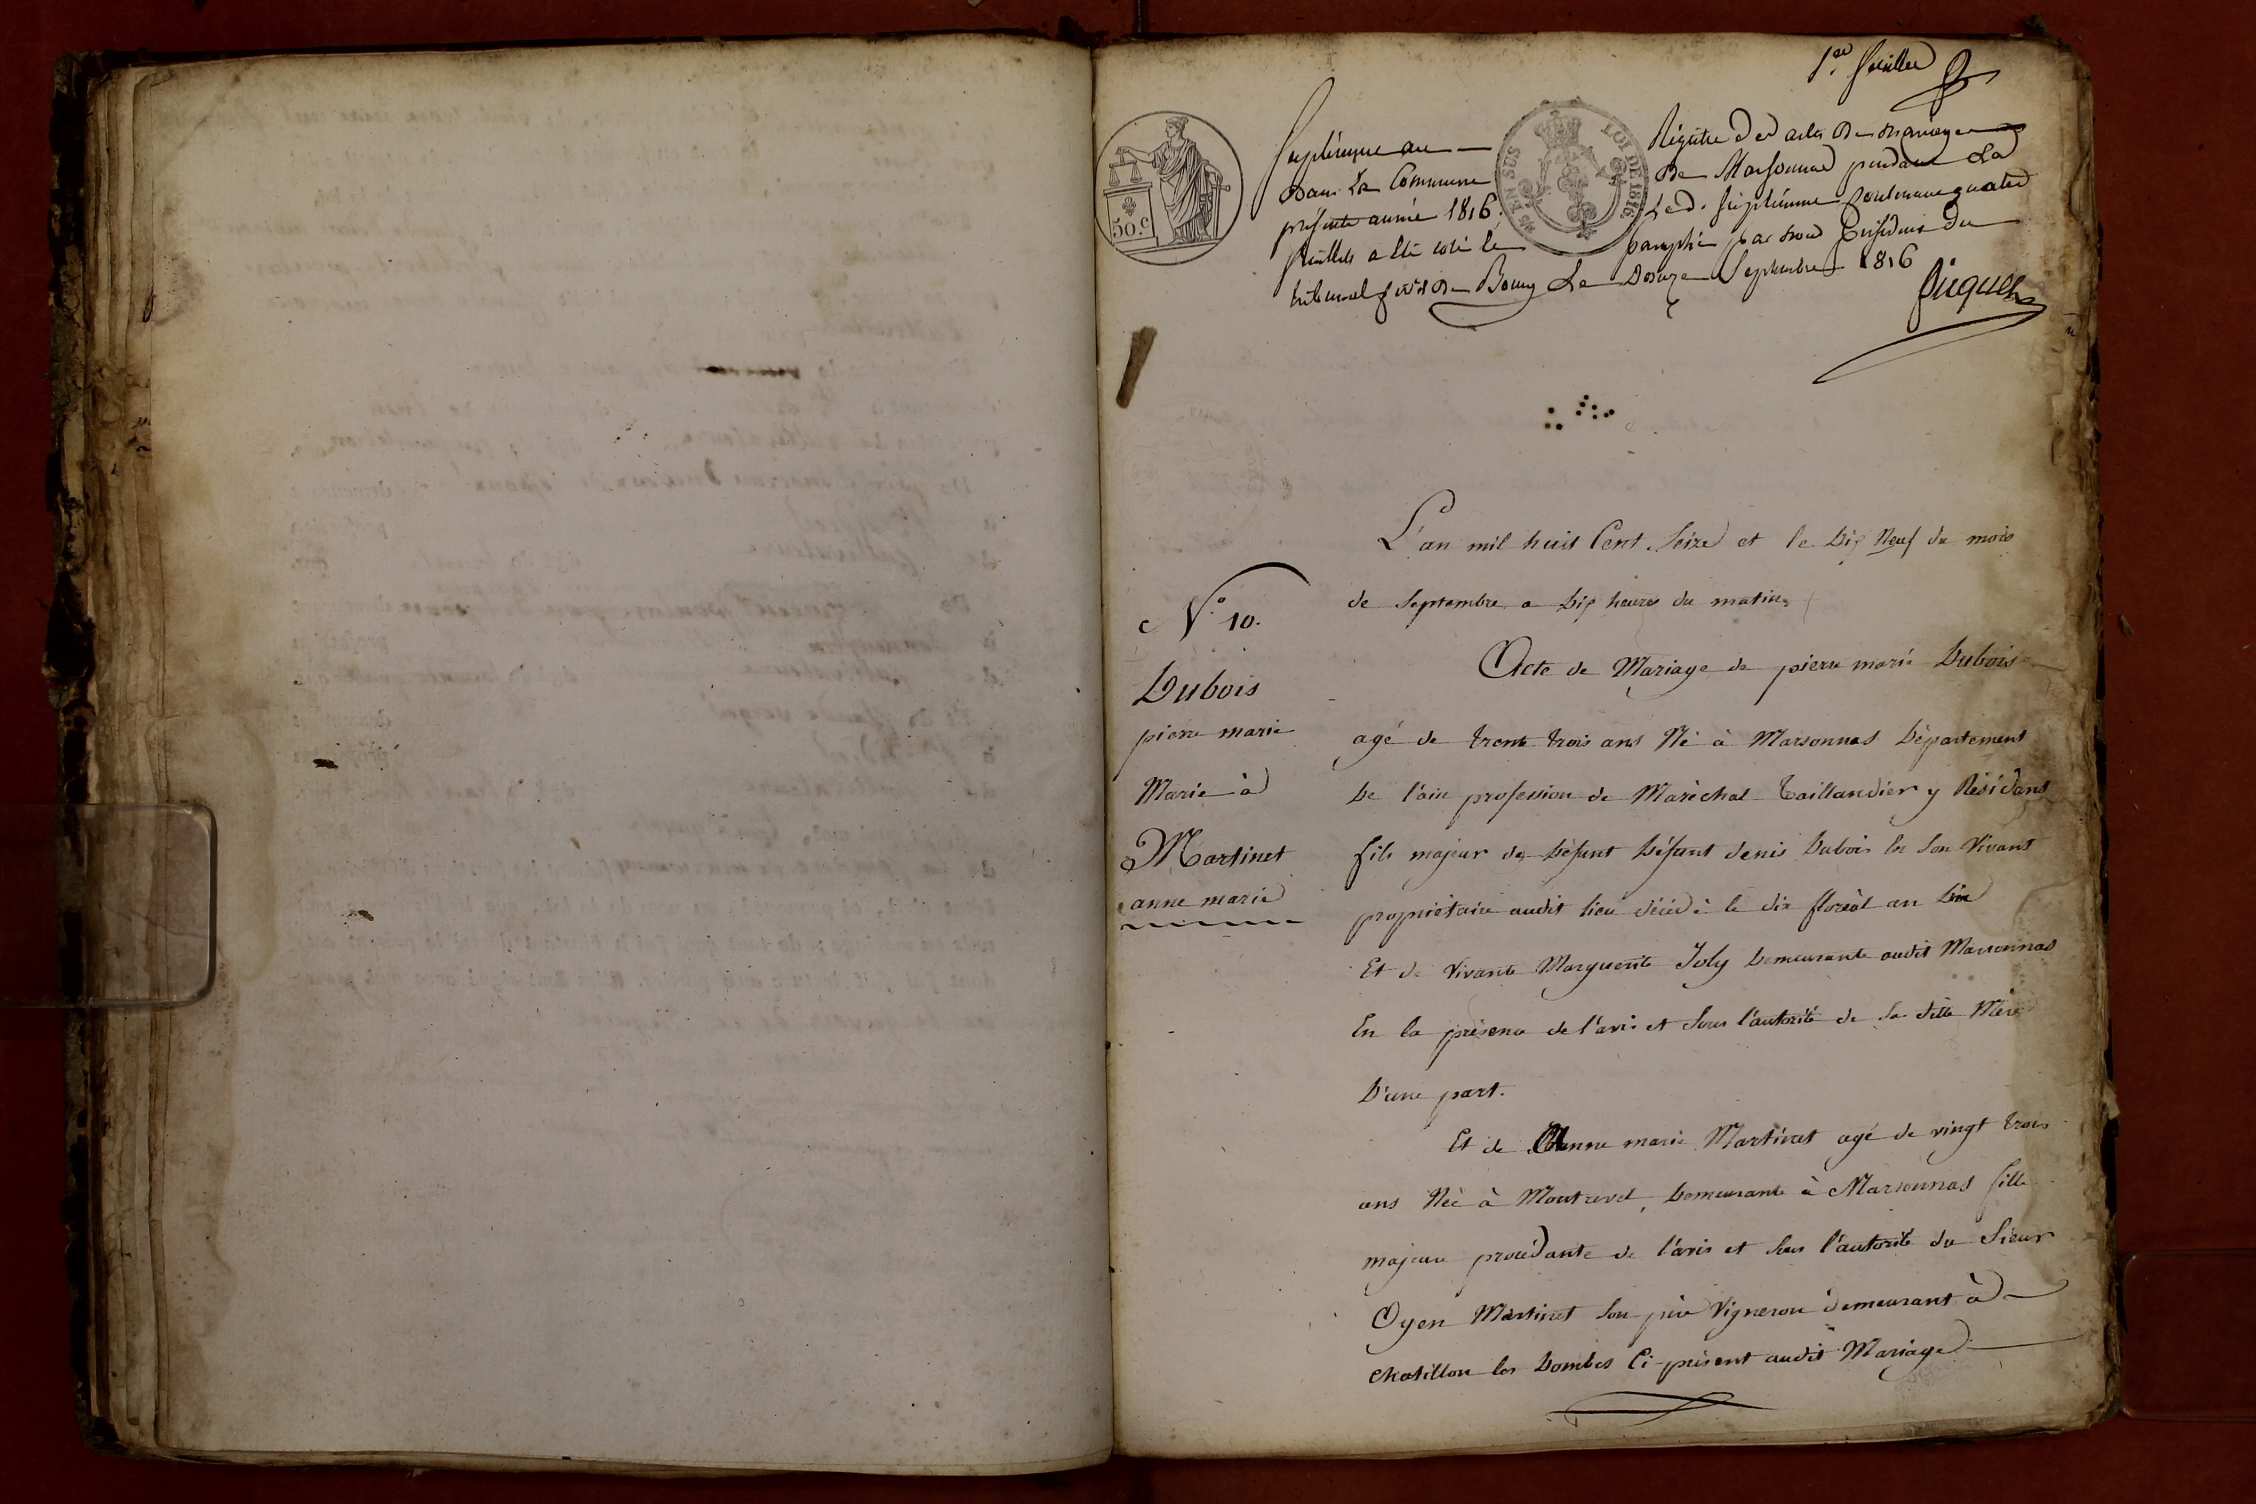 1er feuillet
Suplément au Régistre des actes de mariage
dans la Commune de Marsonnas pendant la
présente année 1816. Led. Supplément contenant quatre
feuillets a été coté & paraphé par nous Président du
tribunal civil de Bourg le douze Septembre 1816
Piquet
50.c
EN SUS
LOI DE 1816.
L'an mil huit Cent Seize et le Dix Neuf du mois
de Septembre a Dix heures du matin
N.o 10.
Dubois
pierre marie
Marié à
Martinet
anne marie
Acte de Mariage de pierre marie Dubois
agé de trente trois ans Né à Marsonnas Département
De l'ain profession de Maréchal Taillandier y Résidans
fils majeur de Défunt Défunt denis Dubois En Son Vivant
propriétaire audit lieu décédé le dix floréal an
Et de Vivante Marguerite Joly Demeurante audit Marsonnas
En la présence de l'avis et Sous l'autorité de Sa dite Mère
D'une part.
Et de Anne marie Martinet agé de vingt trois
ans Née à Montrevel, Demeurante à Marsonnas fille
majeure procédante de l'avis et Sous l'autorité du Sieur
Oyen Martinet Son père Vigneron demeurant à
chatillon les Dombes Ci-présent audit Mariage